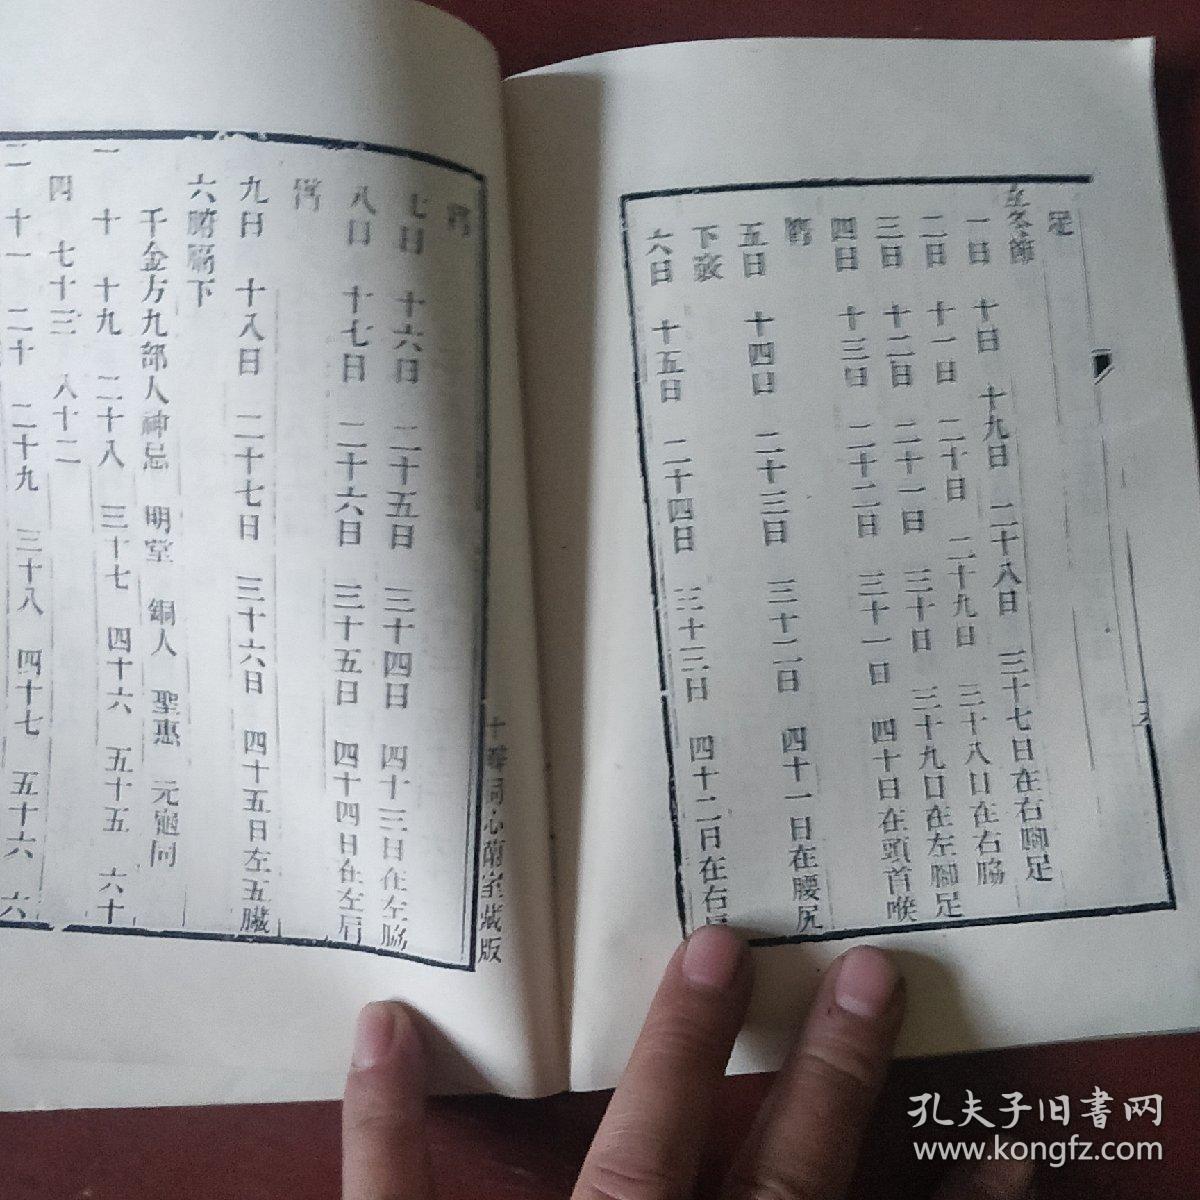 足
立冬節
一日 十日 十九日 二十八日 三十七日在右腳足
二日 十一日 二十日 二十九日 三十八日在右脇
三日 十二日 二十一日 三十日 三十九日在左腳足
四日 十三日 二十二日 三十一日 四十日在頭首喉
五日 十四日 二十三日 三十二日 四十一日在腰尻
下竅
六日 十五日 二十四日 三十三日 四十二日在右
七日 十六日 二十五日 三十四日 四十三日在左脇
八日 十七日 二十六日 三十五日 四十四日在左肩
九日 十八日 二十七日 三十六日 四十五日左五臟
六腑膈下
千金方九部人神忌 明堂 銅人 聖惠 元龜同
一 十 十九 二十八 三十七 四十六 五十五 六十
四 七十三 八十二
二 十一 二十 二十九 三十八 四十七 五十六 六
室藏版
孔夫子旧書网
www.kongfz.com